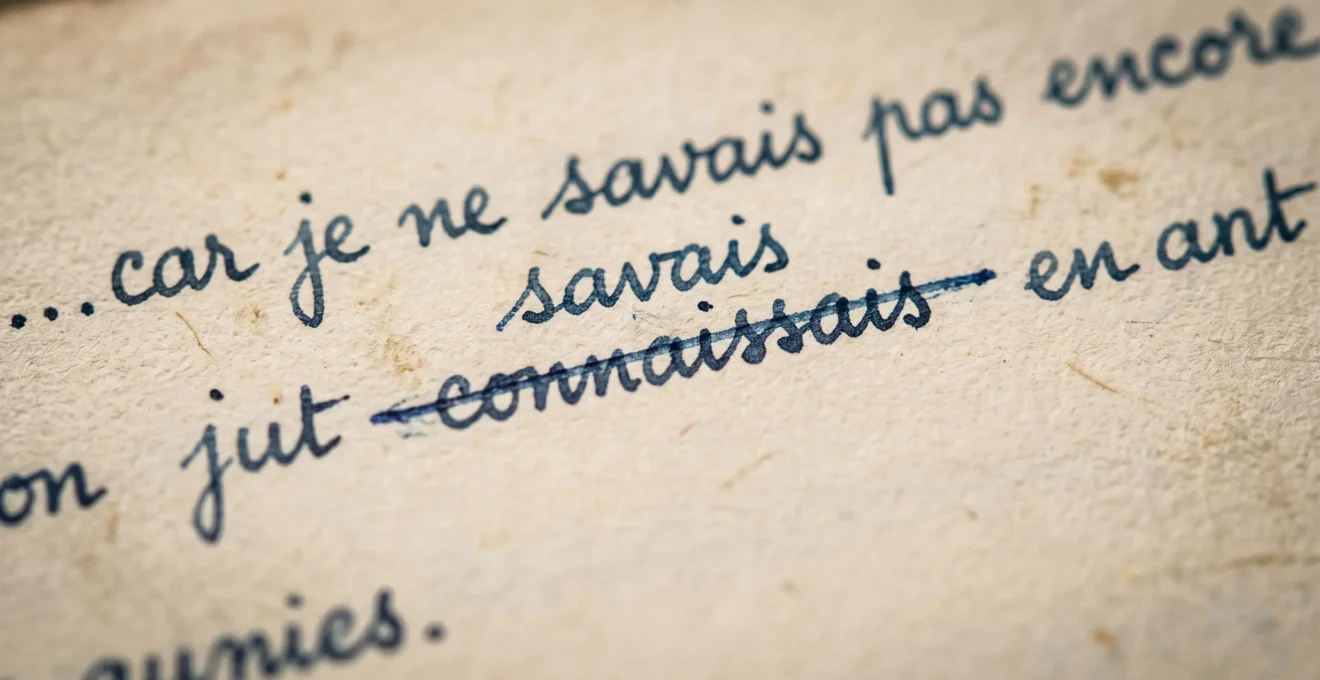 ...car je ne savais pas encore
savais
on jut connaissais en ant